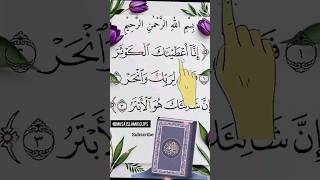 بِسْمِ اللَّهِ الرَّحْمٰنِ الرَّحِيْمِ
إِنَّا أَعْطَيْنَكَ الْكَوْثَرَ ١
لِرَبِّكَ وَانْحَرْ
إِنَّ شَانِئَكَ هُوَ الْأَبْتَرُ ٣
@MUSAISLAMICCLIPS
Subscribe